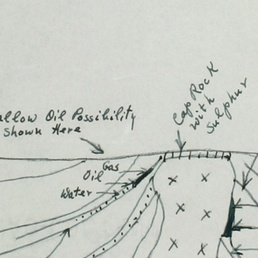 allow Oil Possibility
Shown Here
Cap Rock
with
Sulphur
Gas
Oil
Water